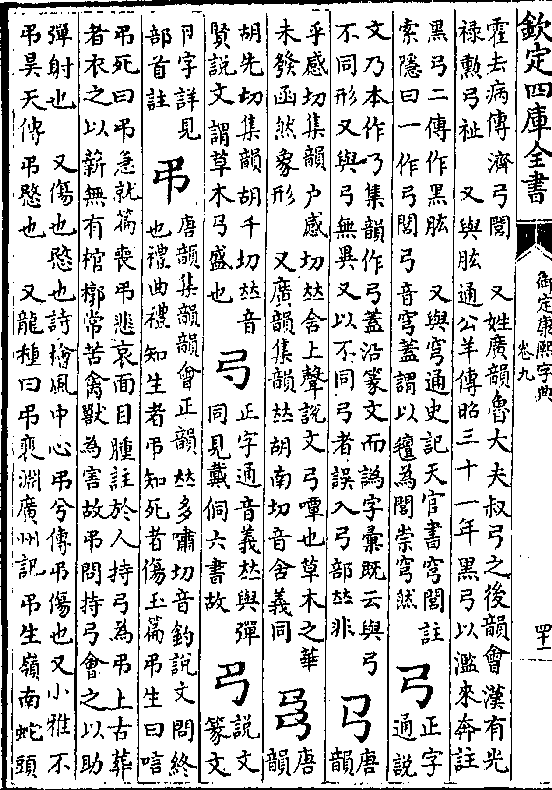 欽定四庫全書
御定康熙字典
卷九
四十一
霍去病傳濟弓閭　又姓廣韻魯大夫叔弓之後韻會漢有光
祿勲弓祉　又與肱通公羊傳昭三十一年黒弓以濫來奔註
黒弓二傳作黒肱　又與穹通史記天官書穹閭註
索隱曰一作弓閭弓音穹蓋謂以氊為閭崇穹然
弓
正字
通說
文乃本作乃集韻作弓蓋沿篆文而譌字彙既云與弓
不同形又與弓無異又以不同弓者誤入弓部𠀤非
𢎘
唐
韻
乎感切集韻户感切𠀤含上聲說文𢎘嘾也草木之華
未發函然象形　又廣韻集韻𠀤胡南切音含義同
𢎜
唐
韻
胡先切集韻胡千切𠀤音
賢說文謂草木𢎘盛也
𢎫
正字通音義𠀤與彈
同見戴侗六書故
說文
篆文
卪字詳見
部首註
弔
唐韻集韻韻會正韻𠀤多嘯切音釣說文問終
也禮曲禮知生者弔知死者傷玉篇弔生曰唁
弔死曰弔急就篇喪弔悲哀面目腫註於人持弓為弔上古葬
者衣之以薪無有棺槨常苦禽獸為害故弔問持弓會之以助
彈射也　又傷也愍也詩檜風中心弔兮傳弔傷也又小雅不
弔昊天傳弔愍也　又龍種曰弔裴淵廣州記弔生嶺南蛇頭